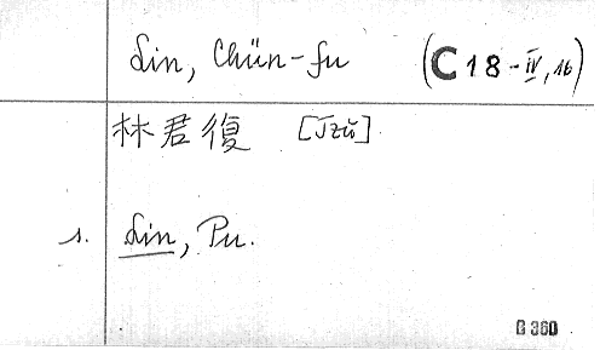 Lin, Chün-fu (C 18-IV, 16)
林君復 [Tzŭ]
s. Lin, Pu.
G 360